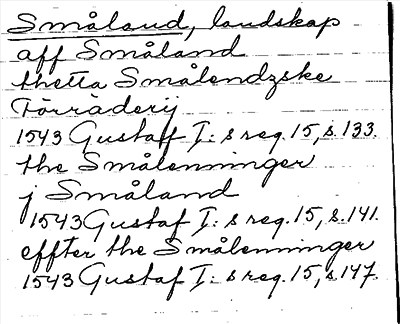 Småland, landskap
aff Småland
thetta Smålendzske
Förräderij
1543 Gustaf I: s reg. 15, s. 133.
the Smålenninger
j Småland
1543 Gustaf I: s reg. 15, s. 141.
effter the Smålenninger
1543 Gustaf I: s reg. 15, s. 147.